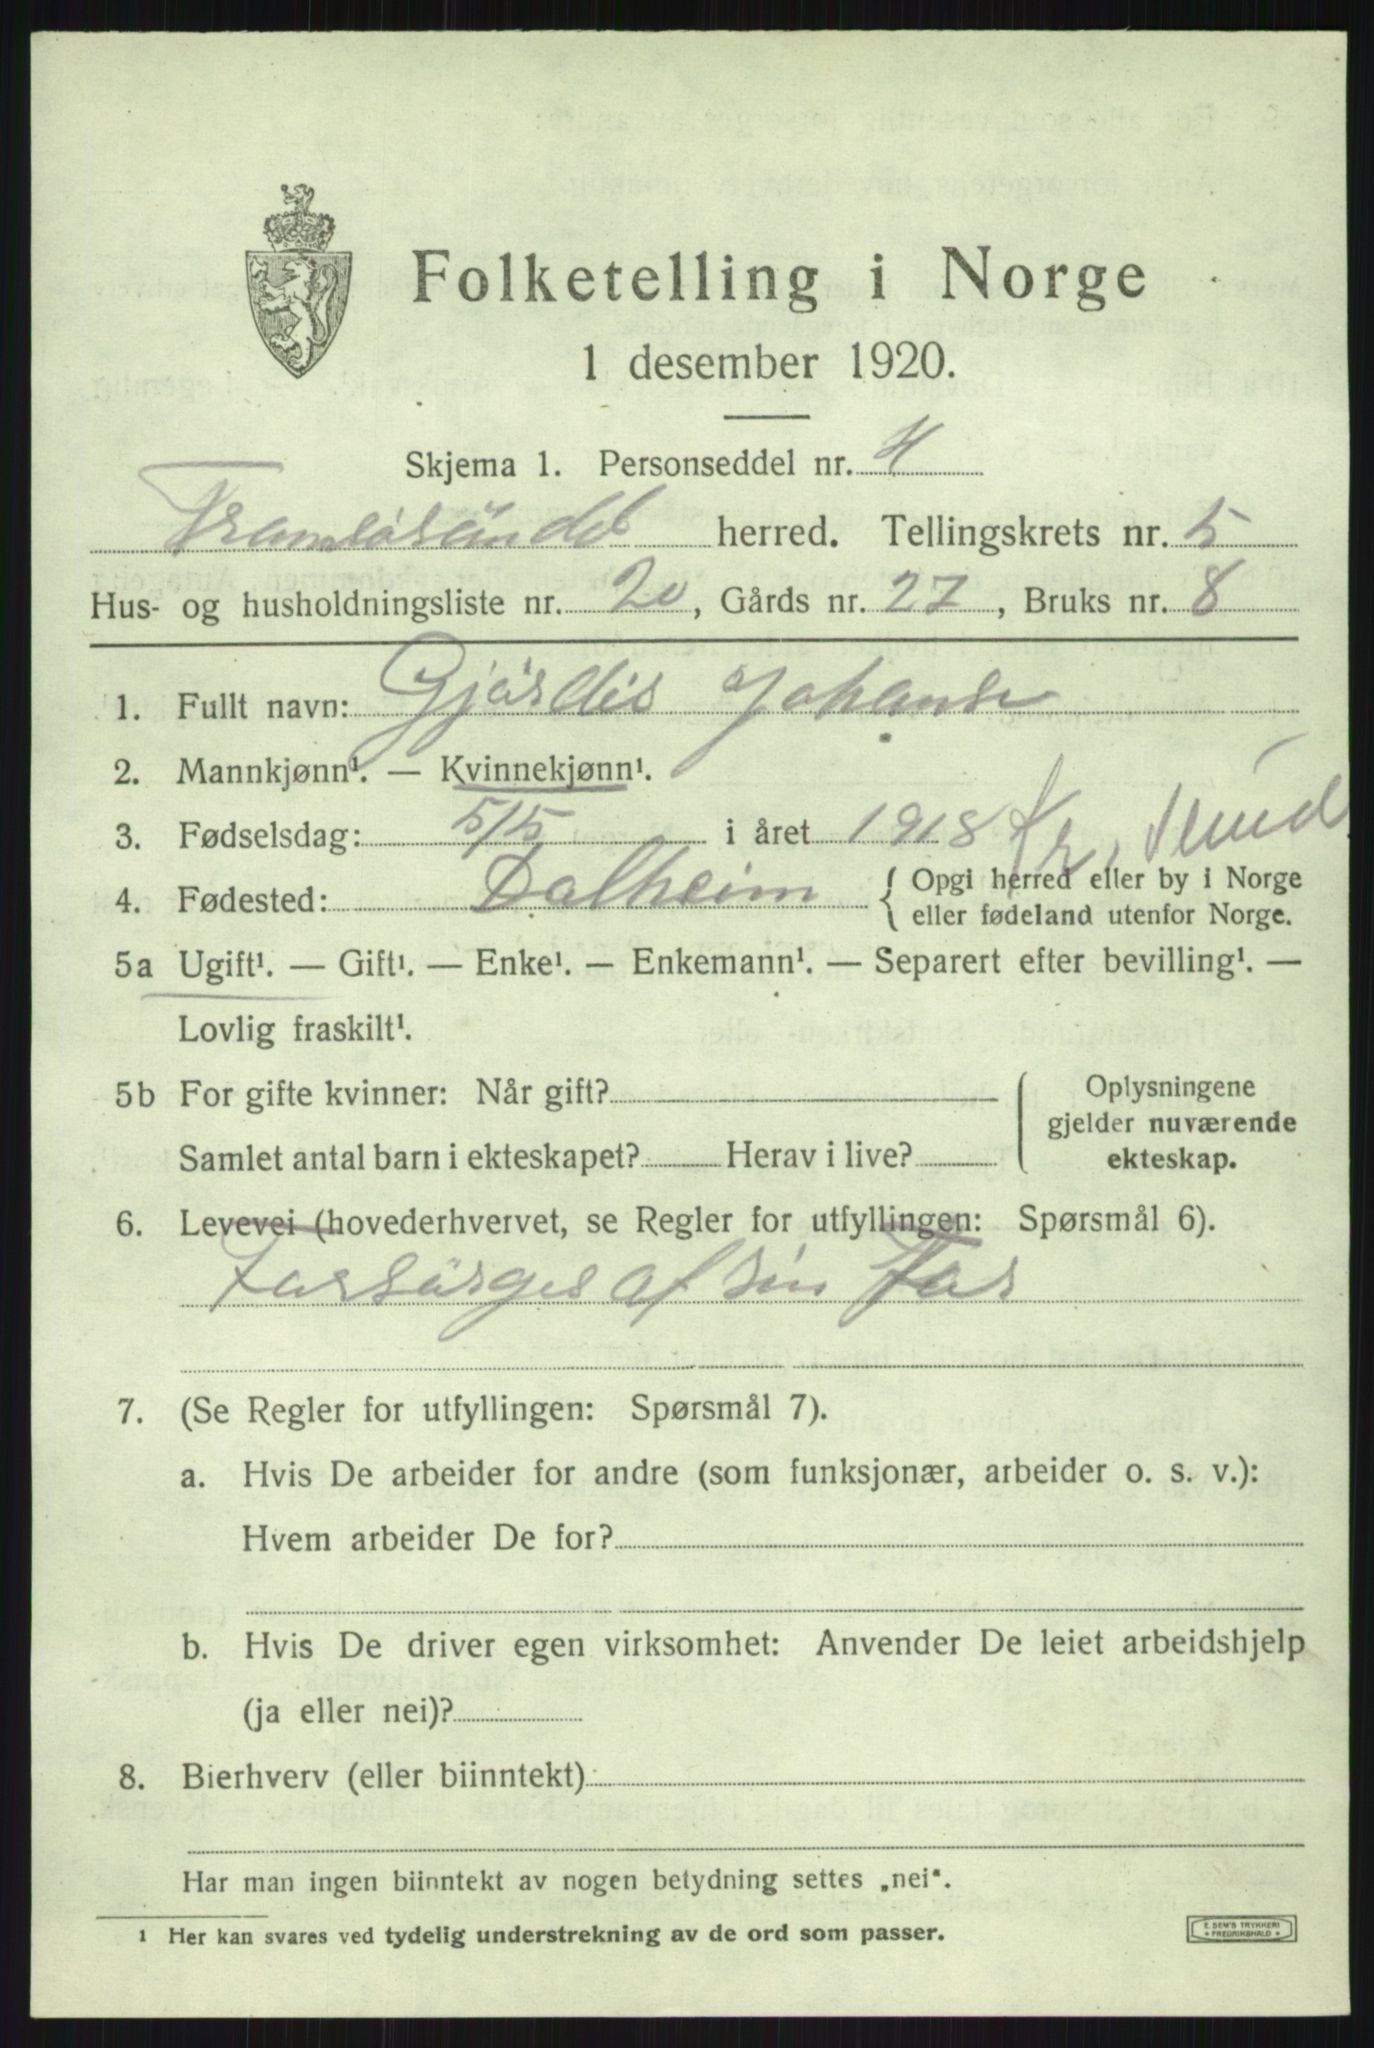 Folketelling i Norge
1 desember 1920.
Skjema 1. Personseddel nr. 4
Tromsösundet herred. Tellingskrets nr. 5
Hus- og husholdningsliste nr. 20, Gårds nr. 27, Bruks nr. 8
1. Fullt navn: Gjördis Johanse
2. Mannkjønn¹. — Kvinnekjønn¹.
3. Fødselsdag: 5/5 i året 1918
4. Fødested: Dalheim { Opgi herred eller by i Norge
eller fødeland utenfor Norge.
5a Ugift¹. — Gift¹. — Enke¹. — Enkemann¹. — Separert efter bevilling¹. —
Lovlig fraskilt¹.
5b For gifte kvinner: Når gift? Oplysningene
gjelder nuværende
Samlet antal barn i ekteskapet? Herav i live? ekteskap.
6. Levevei (hovederhvervet, se Regler for utfyllingen: Spørsmål 6).
Forsörges af sin Far
7. (Se Regler for utfyllingen: Spørsmål 7).
a. Hvis De arbeider for andre (som funksjonær, arbeider o. s. v.):
Hvem arbeider De for?
b. Hvis De driver egen virksomhet: Anvender De leiet arbeidshjelp
(ja eller nei)?
8. Bierhverv (eller biinntekt)
Har man ingen biinntekt av nogen betydning settes „nei“.
¹ Her kan svares ved tydelig understrekning av de ord som passer.
E. SEM'S TRYKKERI
FREDRIKSHALD